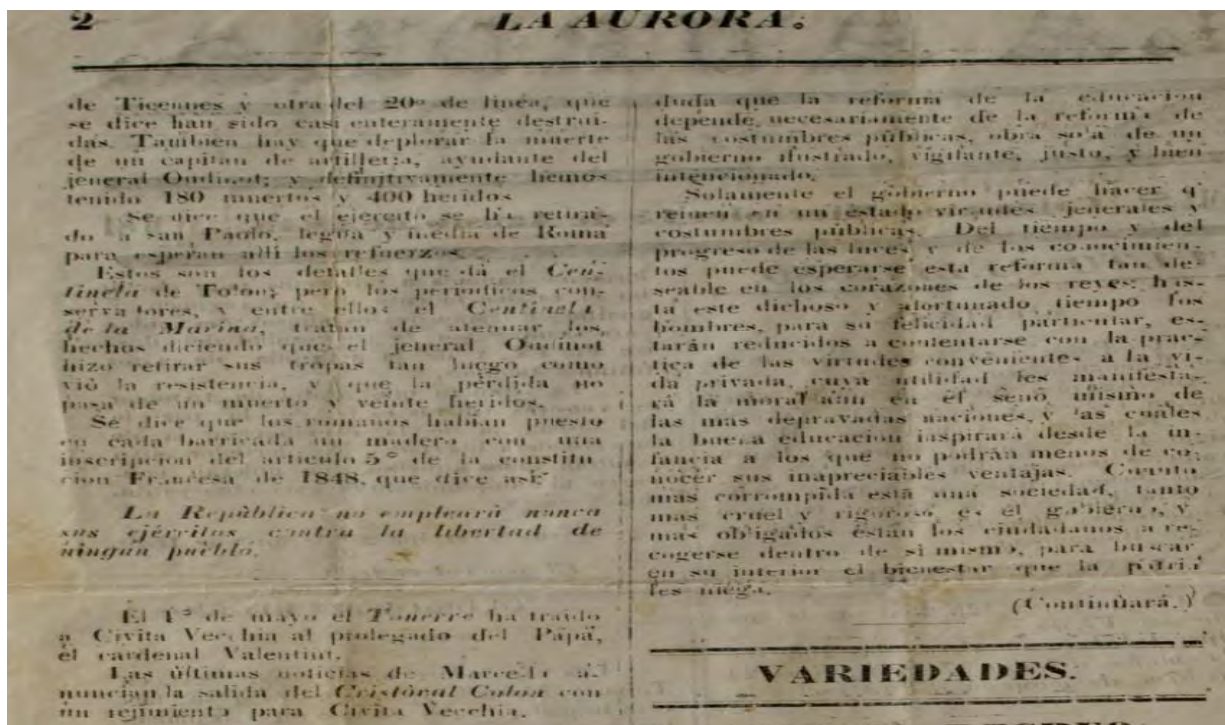 2
LA AURORA.
de Ticennes y otra del 20º de linéa, que
se dice han sido casi enteramente destrui-
das. Tambien hay que deplorar la muerte
de un capitan de artilleria, ayudante del
jeneral Oudinot; y definitivamente hemos
tenido 180 muertos y 400 heridos
Se dice que el ejercito se ha retira-
do a san Paolo, legua y media de Roma
para esperar alli los refuerzos.
Estos son los detalles que dá el Cen-
tinela de Tolon; pero los periodicos con-
servadores, y entre ellos el Centinela
de la Marina, tratan de atenuar los
hechos diciendo que el jeneral Oudinot
hizo retirar sus tropas tan luego como
vió la resistencia, y que la pérdida no
pasa de un muerto y veinte heridos.
Se dice que los romanos habian puesto
en cada barricada un madero con una
inscripcion del articulo 5º de la constitu
cion Francesa de 1848, que dice asi:
La Repùblica no empleará nunca
sus ejércitos contra la libertad de
ningun pueblo.
El 1º de mayo el Tonerre ha traido
a Civita Vecchia al prolegado del Papa,
el cardenal Valentini.
Las últimas noticias de Marcella a-
nuncian la salida del Cristòval Colon con
un rejimiento para Civita Vecchia.
duda que la reforma de la educacion
depende necesariamente de la reforma de
las costumbres pùblicas, obra sola de un
gobierno ilustrado, vigilante, justo, y bien
intencionado.
Solamente el gobierno puede hacer q'
reinen en un estado virtudes jenerales y
costumbres pùblicas. Del tiempo y del
progreso de las luces y de los conocimien-
tos puede esperarse esta reforma tan de-
seable en los corazones de los reyes: has-
ta este dichoso y afortunado tiempo los
hombres, para su felicidad particular, es-
tarán reducidos a contentarse con la prac-
tica de las virtudes convenientes a la vi-
da privada, cuya utilidad les manifesta-
rá la moral aun en el seno mismo de
las mas depravadas naciones, y las cuales
la buena educacion inspirará desde la in-
fancia a los que no podrán menos de co-
nocer sus inapreciables ventajas. Cuanto
mas corrompida está una sociedad, tanto
mas cruel y riguroso es el gobierno, y
mas obligados están los ciudadanos a re-
cogerse dentro de si mismo, para buscar
en su interior el bienestar que la pátria
les niega.
(Continùará.)
VARIEDADES.